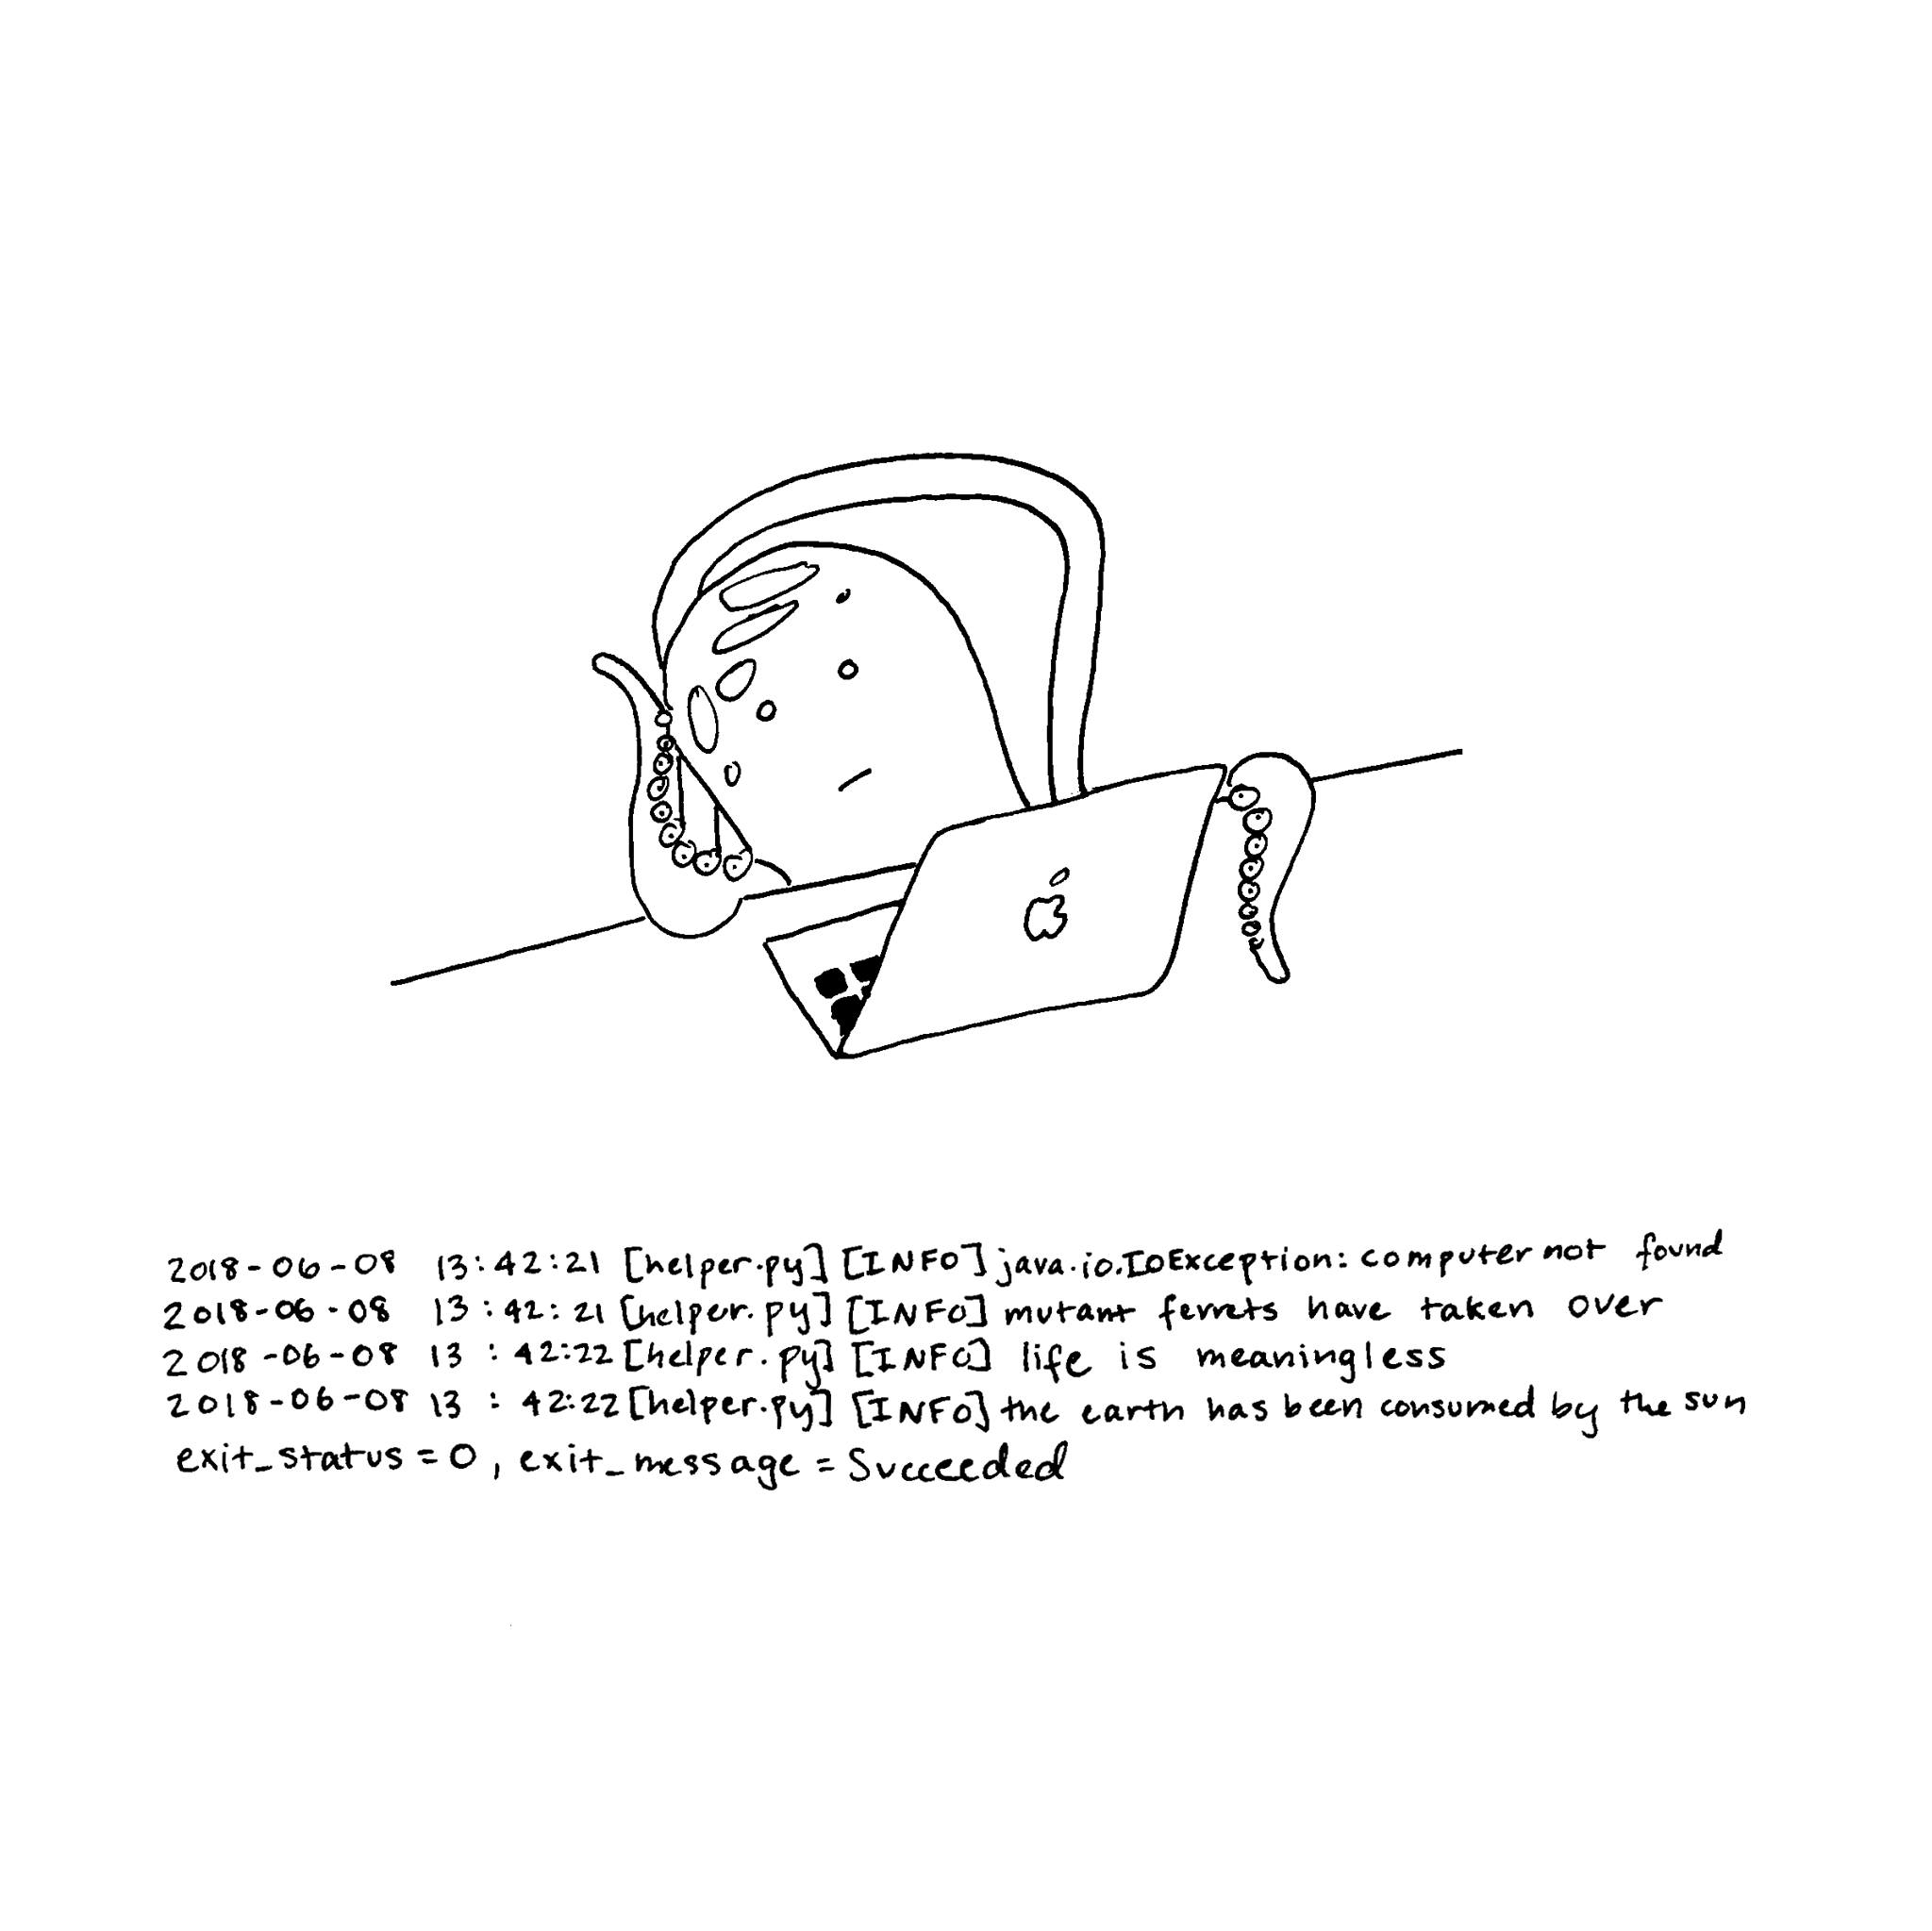 2018-06-08 13:42:21 [helper.py] [INFO] java.io.IOException: computer not found
2018-06-08 13:42:21 [helper.py] [INFO] mutant ferrets have taken over
2018-06-08 13:42:22 [helper.py] [INFO] life is meaningless
2018-06-08 13:42:22 [helper.py] [INFO] the earth has been consumed by the sun
exit_status = 0, exit_message = Succeeded